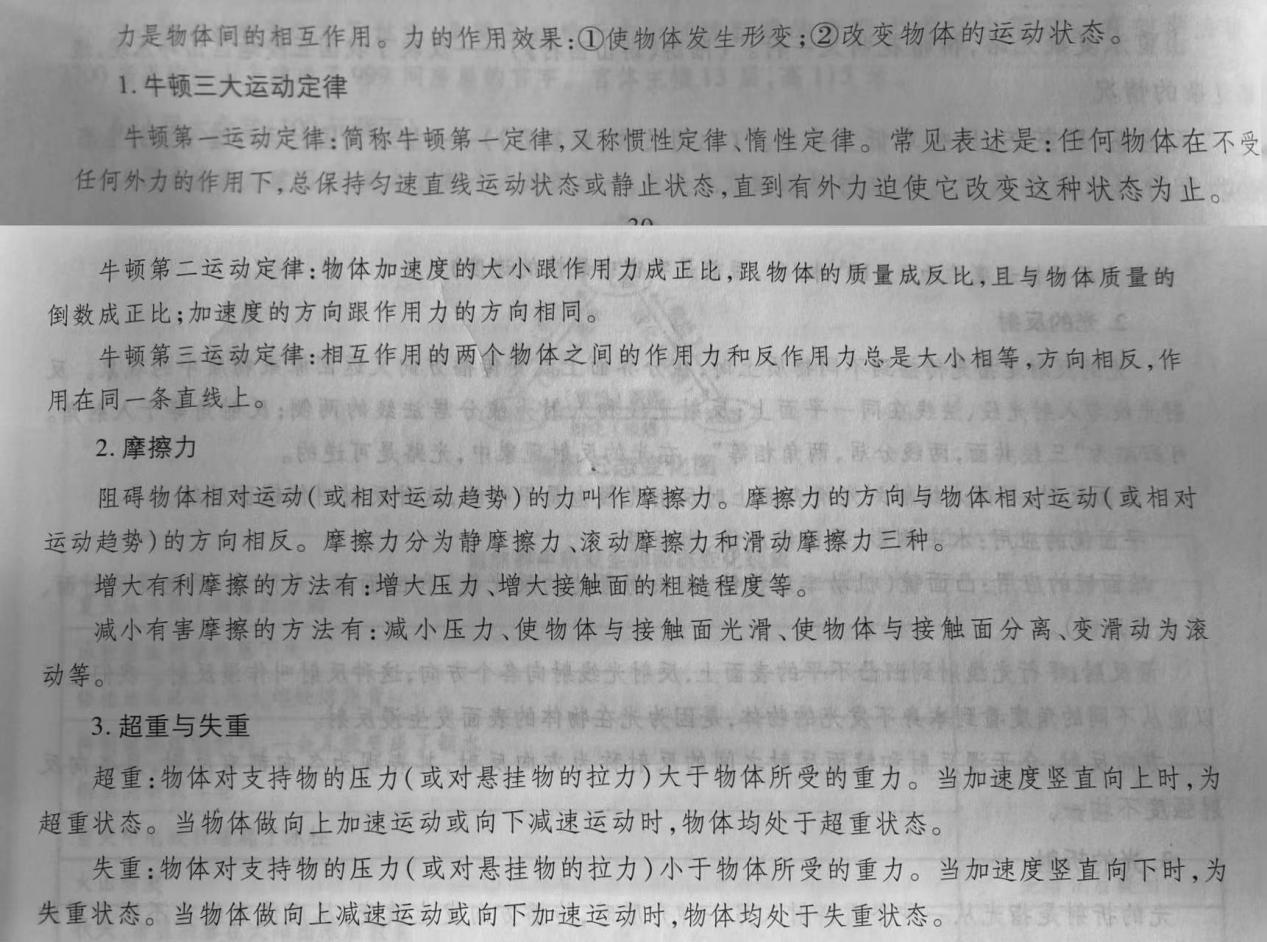 力是物体间的相互作用。力的作用效果:①使物体发生形变;②改变物体的运动状态。
1. 牛顿三大运动定律
牛顿第一运动定律:简称牛顿第一定律,又称惯性定律、惰性定律。常见表述是:任何物体在不受
任何外力的作用下,总保持匀速直线运动状态或静止状态,直到有外力迫使它改变这种状态为止。
牛顿第二运动定律:物体加速度的大小跟作用力成正比,跟物体的质量成反比,且与物体质量的
倒数成正比;加速度的方向跟作用力的方向相同。
牛顿第三运动定律:相互作用的两个物体之间的作用力和反作用力总是大小相等,方向相反,作
用在同一条直线上。
2. 摩擦力
阻碍物体相对运动(或相对运动趋势)的力叫作摩擦力。摩擦力的方向与物体相对运动(或相对
运动趋势)的方向相反。摩擦力分为静摩擦力、滚动摩擦力和滑动摩擦力三种。
增大有利摩擦的方法有:增大压力、增大接触面的粗糙程度等。
减小有害摩擦的方法有:减小压力、使物体与接触面光滑、使物体与接触面分离、变滑动为滚
动等。
3. 超重与失重
超重:物体对支持物的压力(或对悬挂物的拉力)大于物体所受的重力。当加速度竖直向上时,为
超重状态。当物体做向上加速运动或向下减速运动时,物体均处于超重状态。
失重:物体对支持物的压力(或对悬挂物的拉力)小于物体所受的重力。当加速度竖直向下时,为
失重状态。当物体做向上减速运动或向下加速运动时,物体均处于失重状态。